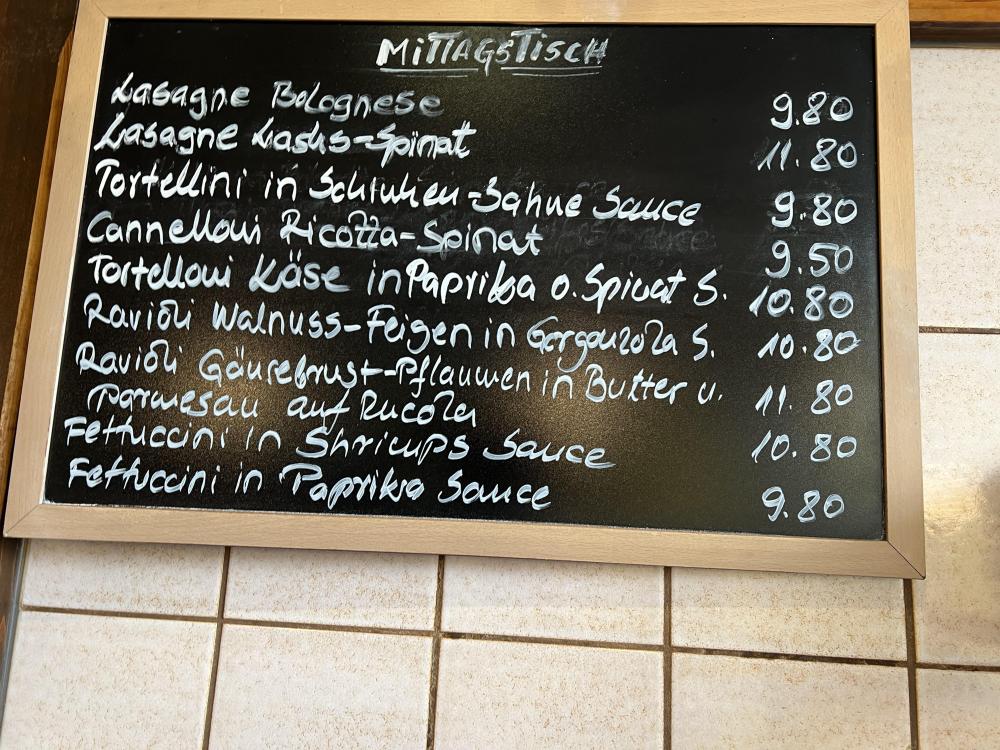 MITTAGSTISCH
Lasagne Bolognese 9.80
Lasagne Lachs-Spinat 11.80
Tortellini in Schinken-Sahne Sauce 9.80
Cannelloni Ricotta-Spinat 9.50
Tortelloni Käse in Paprika o. Spinat S. 10.80
Ravioli Walnuss-Feigen in Gorgonzola S. 10.80
Ravioli Gänsebrust-Pflaumen in Butter u. 11.80
Parmesan auf Rucola
Fettuccini in Shrimps Sauce 10.80
Fettuccini in Paprika Sauce 9.80